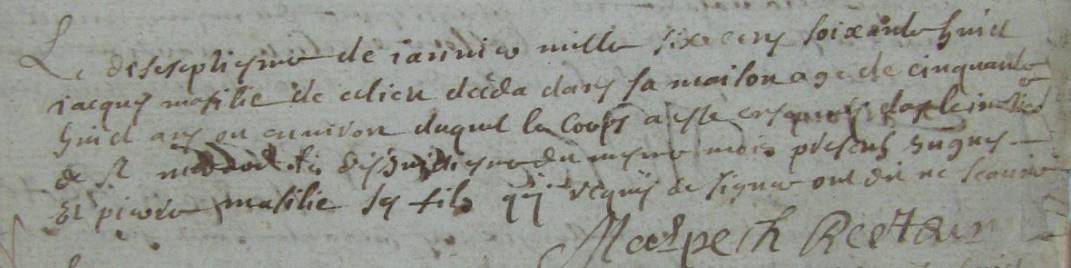 Le diseseptiesme de ianvier mille six cens soixante huict
iacques masilie de ce lieu deceda dans sa maison age de cinquante
huict ans ou environ duquel le corps a este
de St le dishuictiesme du mesme mois presens hugues
et pierre masilie ses fils qui requis de signer ont dit ne scavoir
Malpech Recteur